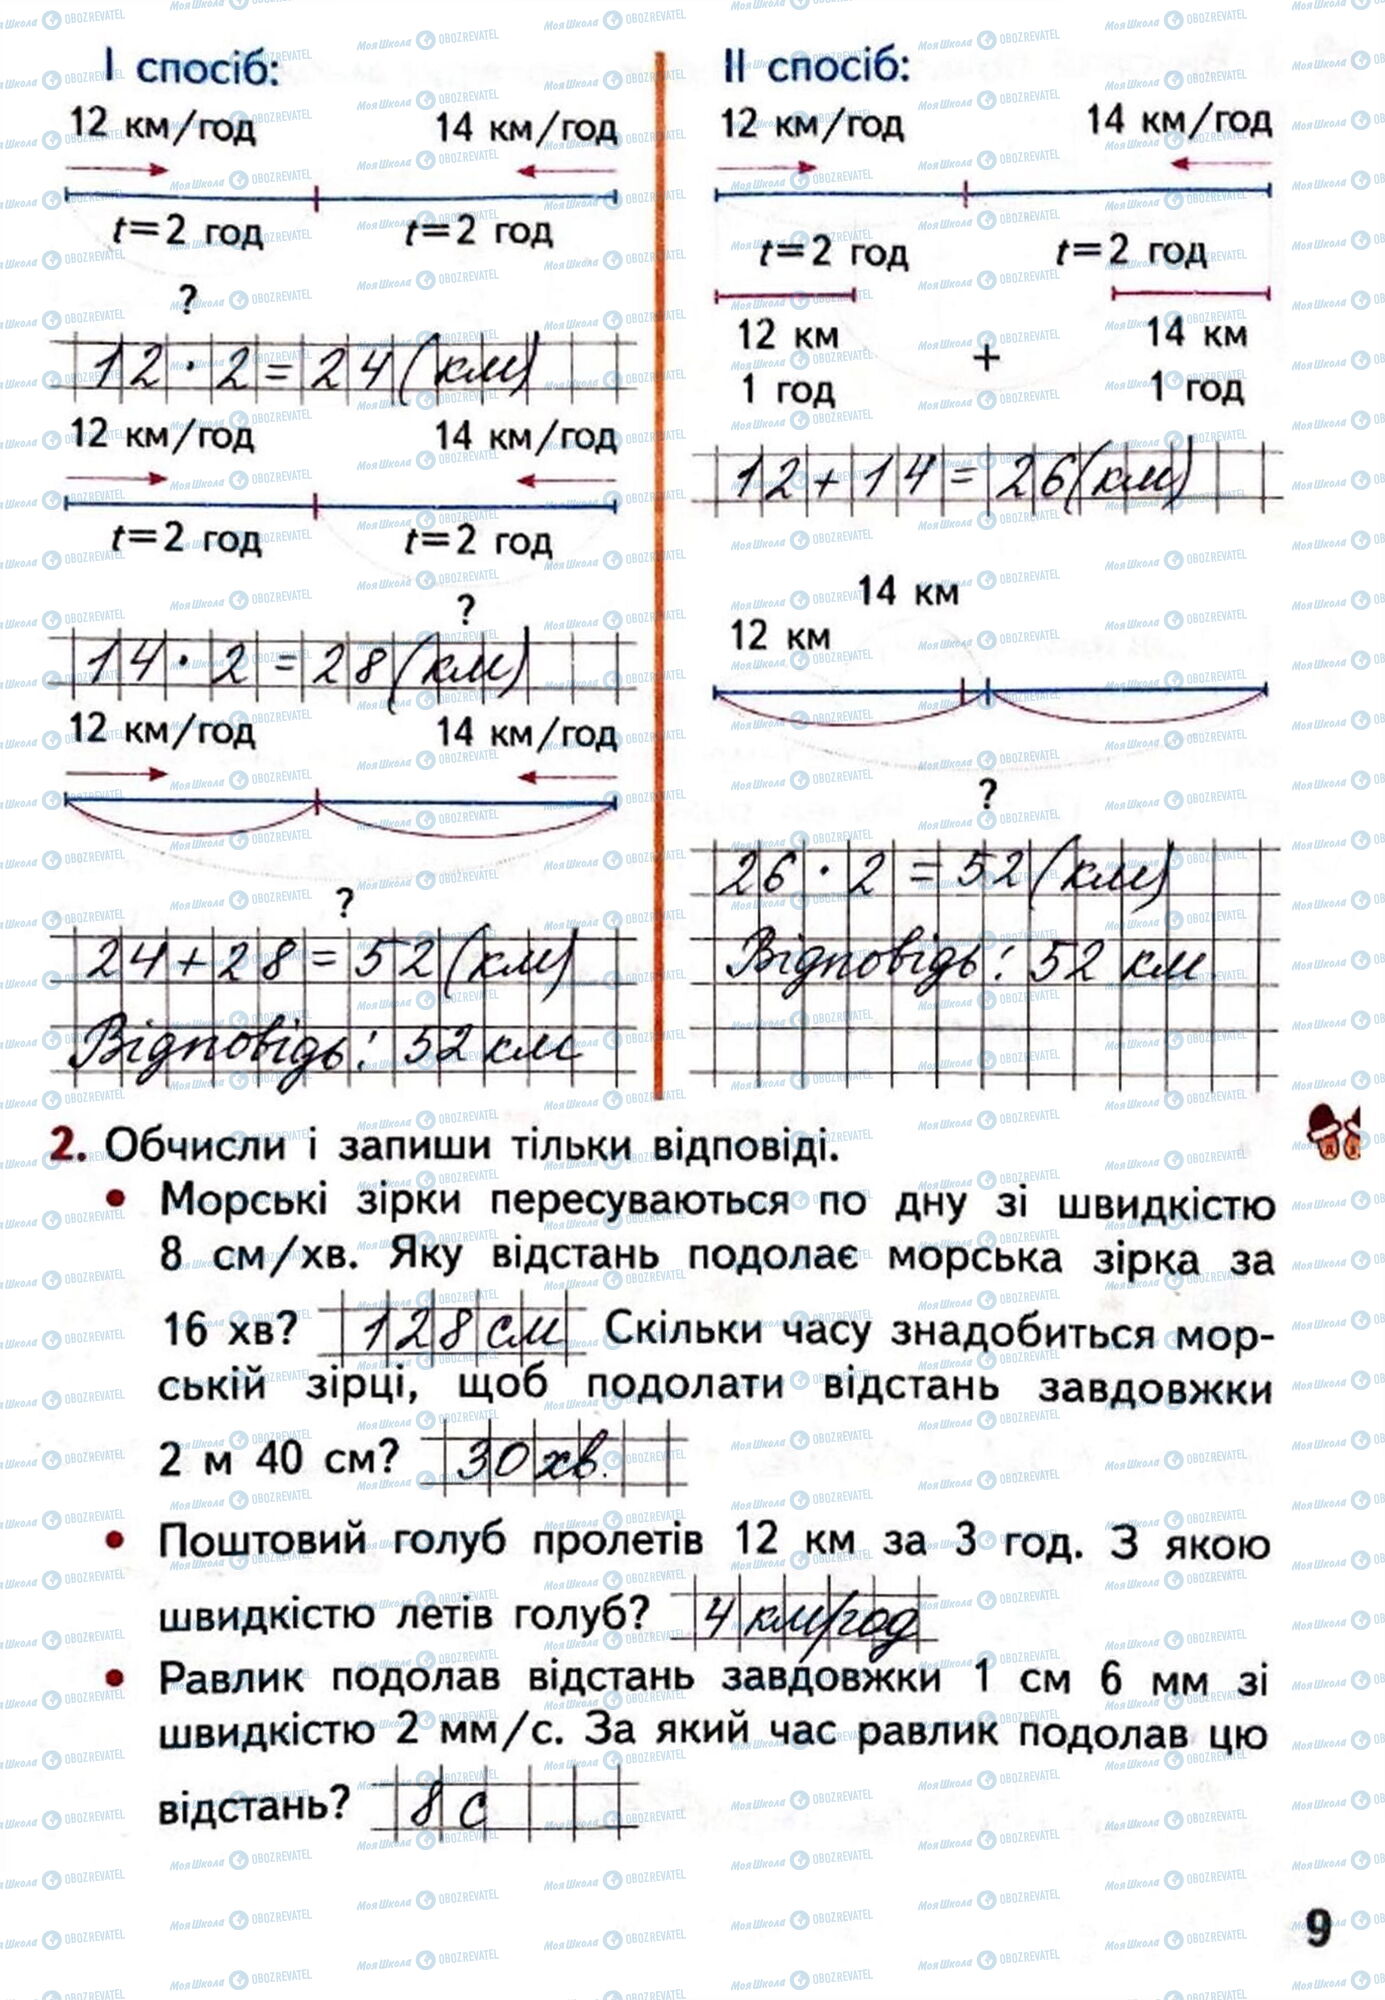 І спосіб:
12 км/год 14 км/год
t=2 год t=2 год
?
12 · 2 = 24 (км)
12 км/год 14 км/год
t=2 год t=2 год
?
14 · 2 = 28 (км)
12 км/год 14 км/год
?
24 + 28 = 52 (км)
Відповідь: 52 км
ІІ спосіб:
12 км/год 14 км/год
t=2 год t=2 год
12 км + 14 км
1 год 1 год
12 + 14 = 26 (км)
14 км
12 км
?
26 · 2 = 52 (км)
Відповідь: 52 км
2. Обчисли і запиши тільки відповіді.
• Морські зірки пересуваються по дну зі швидкістю
8 см/хв. Яку відстань подолає морська зірка за
16 хв? 128 см Скільки часу знадобиться мор-
ській зірці, щоб подолати відстань завдовжки
2 м 40 см? 30 хв.
• Поштовий голуб пролетів 12 км за 3 год. З якою
швидкістю летів голуб? 4 км/год
• Равлик подолав відстань завдовжки 1 см 6 мм зі
швидкістю 2 мм/с. За який час равлик подолав цю
відстань? 8 с
9
МояШкола OBOZREVATEL